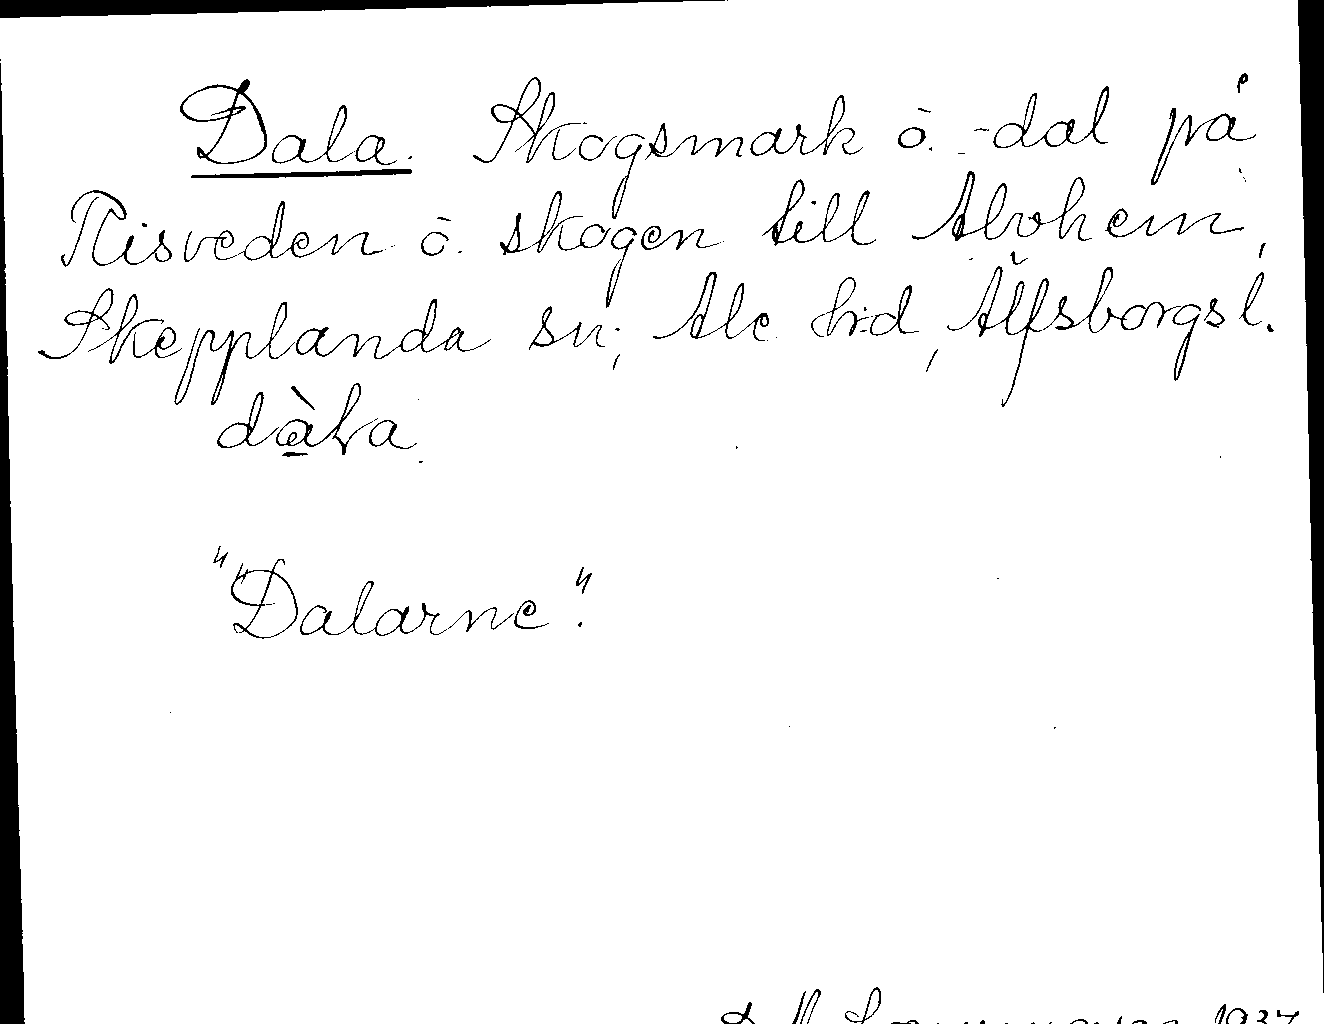 Dala. Skogsmark o. -dal på
Risveden o. skogen till Alvhem,
Skepplanda sn; Ale h:d, Älfsborgs l.
dàla
"Dalarne".
1937